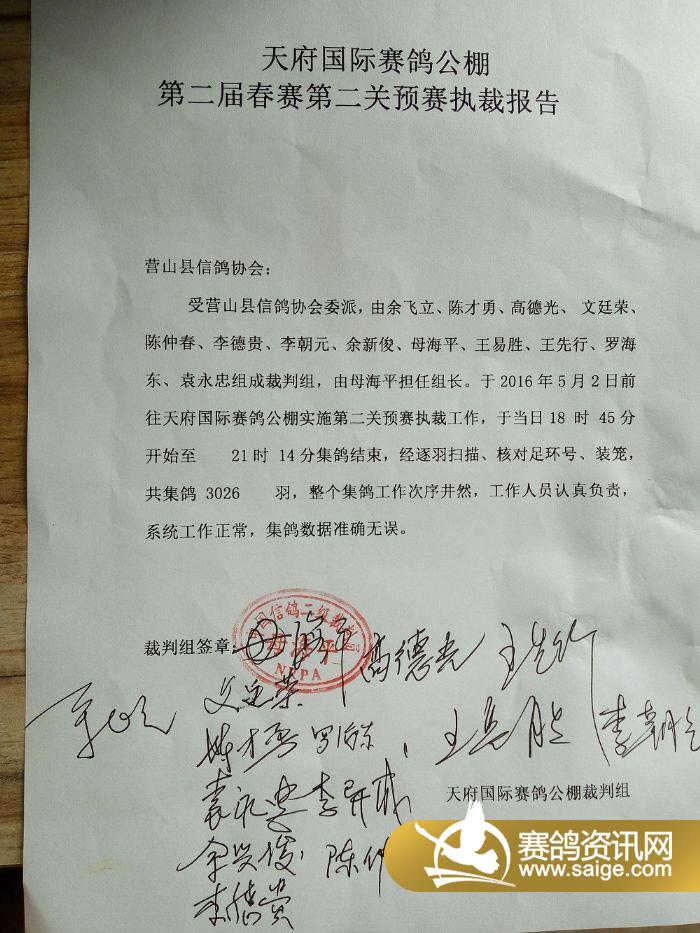 天府国际赛鸽公棚
第二届春赛第二关预赛执裁报告
营山县信鸽协会：
受营山县信鸽协会委派，由余飞立、陈才勇、高德光、 文廷荣、
陈仲春、李德贵、李朝元、余新俊、母海平、王易胜、王先行、罗海
东、袁永忠组成裁判组，由母海平担任组长。于 2016 年 5 月 2 日前
往天府国际赛鸽公棚实施第二关预赛执裁工作，于当日 18 时 45 分
开始至 21 时 14 分集鸽结束，经逐羽扫描、核对足环号、装笼，
共集鸽 3026 羽，整个集鸽工作次序井然，工作人员认真负责，
系统工作正常，集鸽数据准确无误。
国信鸽二级裁判
母海平
NRPA
裁判组签章：母海平 高德光 王先行
文廷荣
陈才勇 罗海东 王易胜 李朝元
袁永忠
天府国际赛鸽公棚裁判组
陈仲
李德贵
赛鸽资讯网
www.saige.com